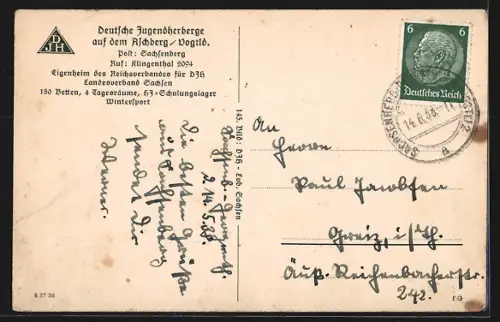 DJH
Deutsche Jugendherberge
auf dem Aschberg/Vogtld.
Post: Sachsenberg
Ruf: Klingenthal 2094
Eigenheim des Reichsverbandes für DJH
Landesverband Sachsen
180 Betten, 4 Tagesräume, HJ-Schulungslager
Wintersport
6 6
Deutsches Reich
SACHSENBERG
145. Bild: DJH - Ldv. Sachsen
d. 14.5.38.
Die besten Grüße
aus Sachsenberg
sendet Dir
Werner.
An
Herrn
Paul Jacobsen
Greiz, i/Th.
Äuß. Reichenbacherstr.
242.
6 37 30